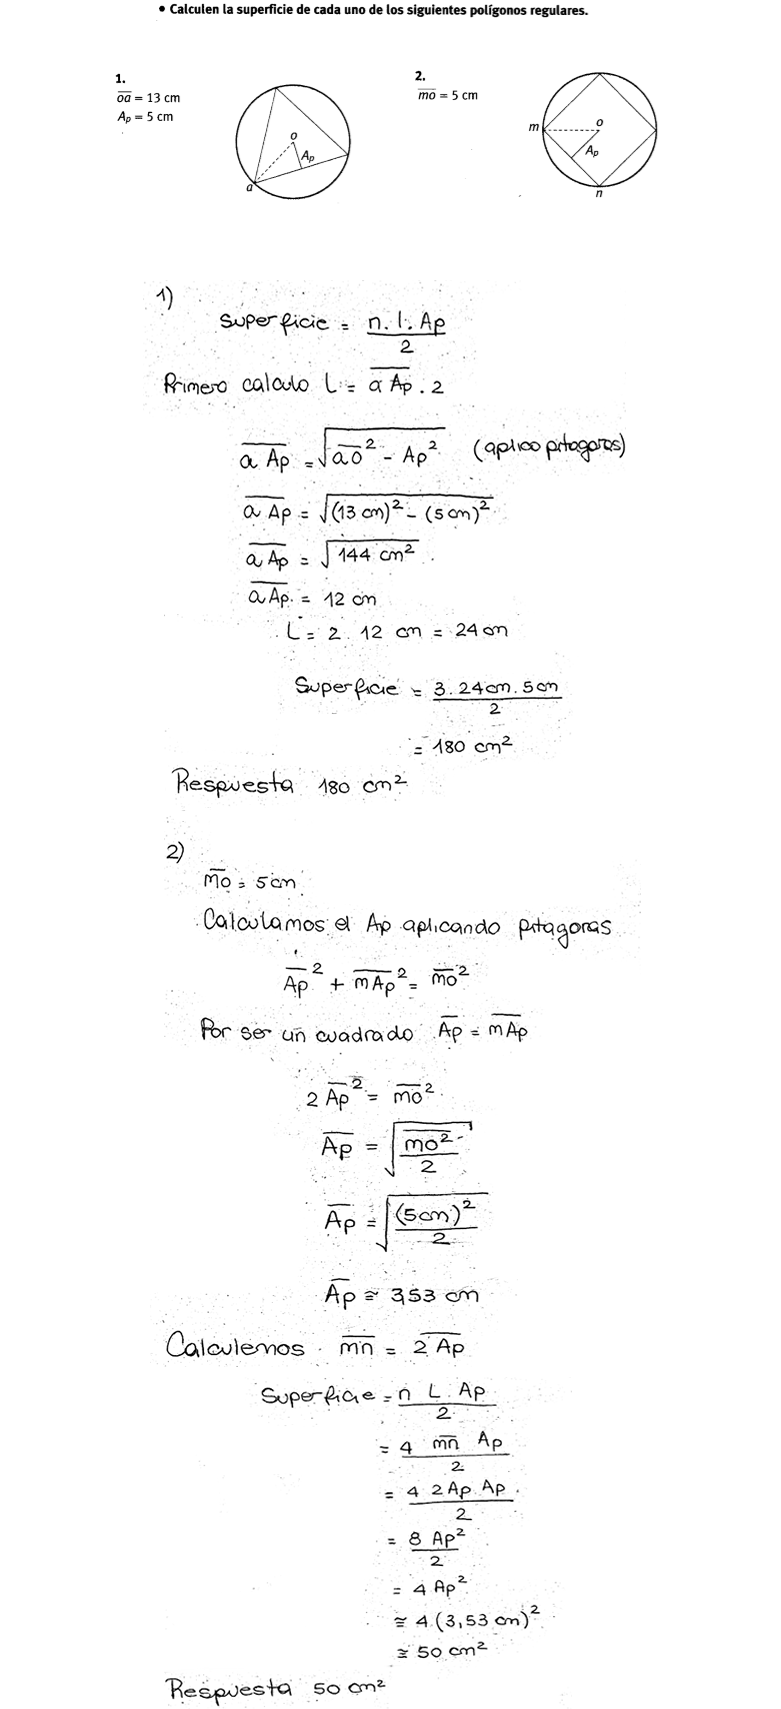 • Calculen la superficie de cada uno de los siguientes polígonos regulares.
1.
oa = 13 cm
Ap = 5 cm
o
Ap
a
2.
mo = 5 cm
m
o
Ap
n
1)
Superficie = n. l. Ap / 2
Primero calculo L = a Ap . 2
a Ap = √(ao² - Ap²) (aplico pitagoras)
a Ap = √((13 cm)² - (5cm)²)
a Ap = √(144 cm²)
a Ap = 12 cm
L = 2 . 12 cm = 24 cm
Superficie = 3 . 24cm . 5cm / 2
= 180 cm²
Respuesta 180 cm²
2)
mo = 5cm
Calculamos el Ap aplicando pitagoras
Ap² + mAp² = mo²
Por ser un cuadrado Ap = mAp
2 Ap² = mo²
Ap = √(mo² / 2)
Ap = √((5cm)² / 2)
Ap ≅ 3,53 cm
Calculemos mn = 2 Ap
Superficie = n L Ap / 2
= 4 mn Ap / 2
= 4 2 Ap Ap / 2
= 8 Ap² / 2
= 4 Ap²
≅ 4 (3,53 cm)²
≅ 50 cm²
Respuesta 50 cm²